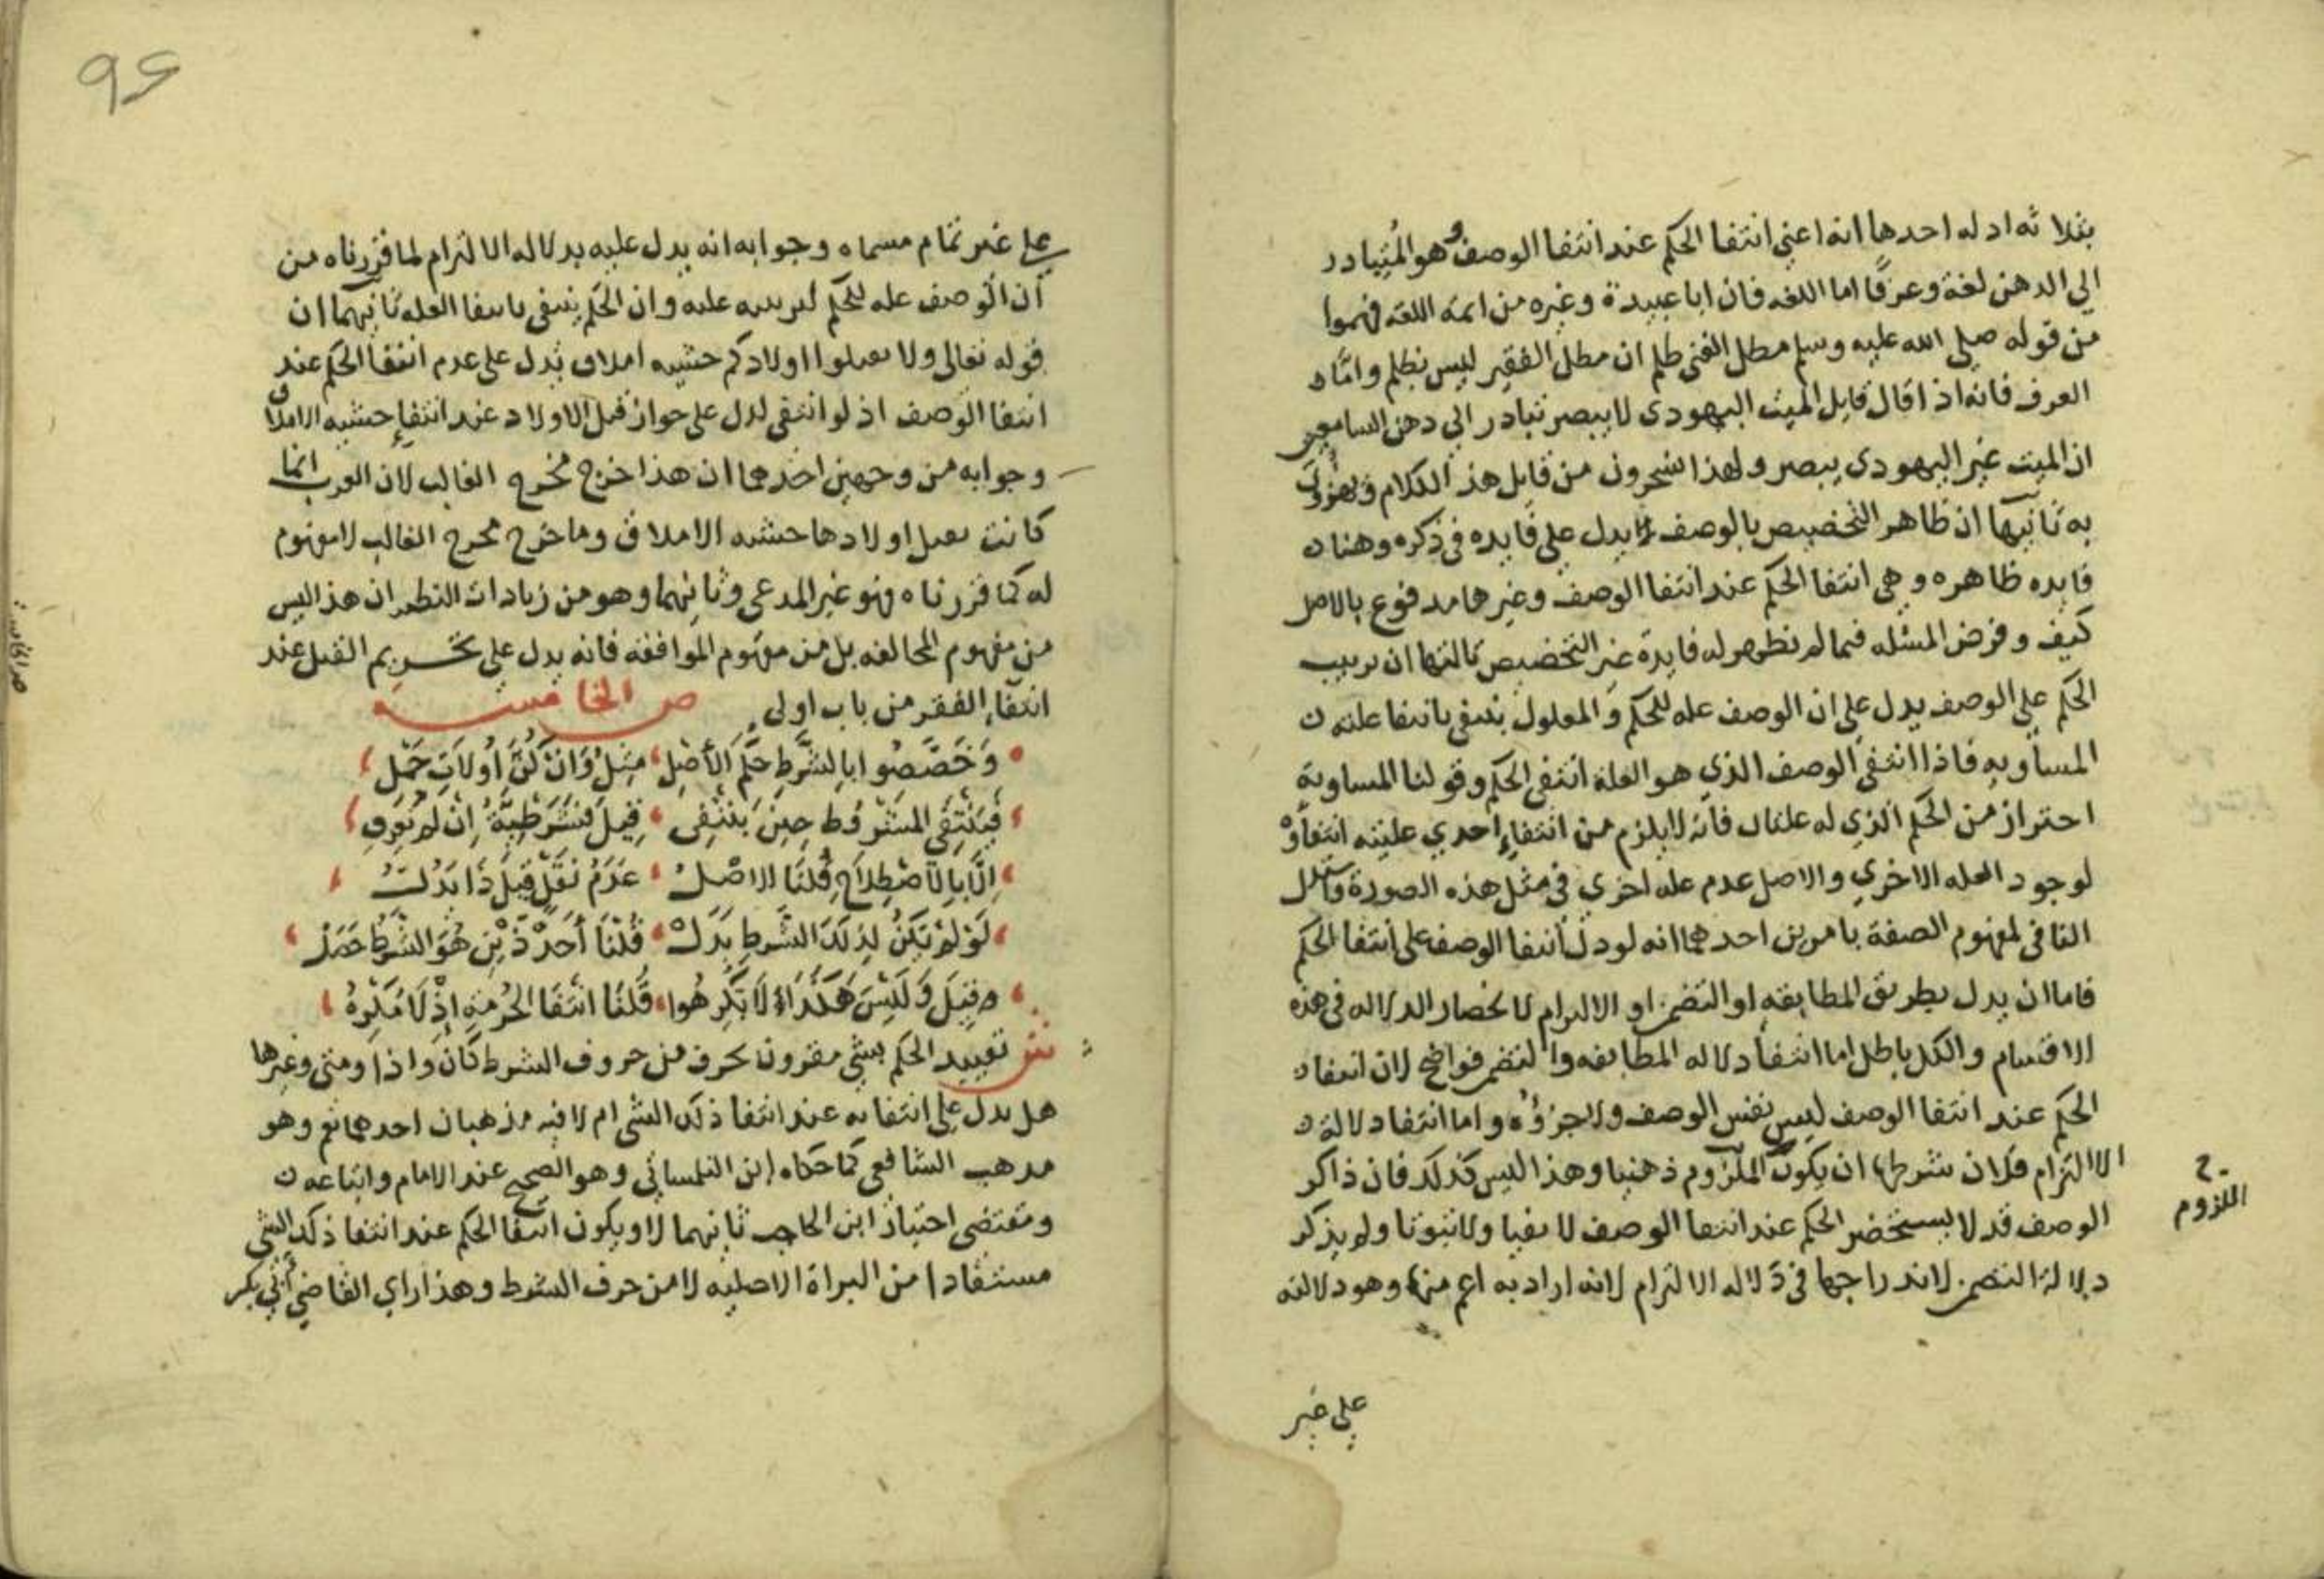 بثلاثه ادله احدها انه اعني انتفا الحكم عند انتفا الوصف وهو المتبادر
الي الدهن لغة وعرفًا اما اللغه فان ابا عبيدة وغيره من ائمة اللغه فهموا
من قوله صلي الله عليه وسلم مطل الغني ظلم ان مطل الفقير ليس بظلم واما
العرف فانه اذا قال قايل الميت اليهودي لا يبصر تبادر الي دهن السامعين
ان الميت غير اليهودي يبصر ولهذا يسخرون من قايل هذ الكلام ويهزون
به ثانيها ان ظاهر التخصيص بالوصف يدل علي فايده في ذكره وهنا
فايده ظاهره وهي انتفا الحكم عند انتفا الوصف وغيرها مدفوع بالاصل
كيف وفرض المسئله فيما لم تظهر له فايدة غير التخصيص ثالثها ان ترتيب
الحكم علي الوصف يدل علي ان الوصف عله للحكم والمعلول ينتفي بانتفا علته
المساويه فاذا انتفي الوصف الذي هو العلة انتفي الحكم وقولنا المساوية
احتراز من الحكم الذي له علتان فانه لا يلزم من انتفاء احدي علتيه انتفاؤه
لوجود العله الاخري والاصل عدم عله اخري في مثل هذه الصورة واستدل
النافي لمفهوم الصفة بامرين احدهما انه لو دل انتفا الوصف على انتفا الحكم
فاما ان يدل بطريق المطابقه او التضمن او الالتزام لانحصار الدلاله في هذه
الاقسام والكل باطل اما انتفا دلاله المطابقه والتضمن فواضح لان انتفا
الحكم عند انتفا الوصف ليس نفس الوصف ولا جزؤه واما انتفا دلالة
الالتزام فلان شرطها ان يكون الملزوم ذهنيا وهذا ليس كذلك فان ذاكر
الوصف قد لا يستحضر الحكم عند انتفا الوصف لا نفيا ولا ثبوتا ولم يذكر
دلالة التضمن لاندراجها في دلاله الالتزام لانه اراد به اعم منها وهو دلالته
اللزوم
علي غير
96
علي غير تمام مسماه وجوابه انه يدل عليه بدلاله الالتزام لما قررناه من
ان الوصف عله للحكم لترتيبه عليه وان الحكم ينتفي بانتفا العله ثانيهما ان
قوله تعالى ولا تقتلوا اولادكم خشيه املاق يدل على عدم انتفا الحكم عند
انتفا الوصف اذ لو انتفى لدل على جواز قتل الاولاد عند انتفاء خشيه الاملاق
وجوابه من وجهين احدهما ان هذا خرج مخرج الغالب لان العرب انما
كانت تقتل اولادها خشيه الاملاق وما خرج مخرج الغالب لا مفهوم
له كما قررناه فهو غير المدعى وثانيهما وهو من زيادات النظم ان هذا ليس
من مفهوم المخالفه بل من مفهوم الموافقه فانه يدل علي تحريم القتل عند
انتفاء الفقر من باب اولى ص الخامسة
وَخَصَّصُوا بِالشَّرطِ حُكْمَ الأَصْلِ مِثلُ وَانْ كُنَّ أُولاَتِ حَمْلِ
فَيَنْتَفِي المَشْرُوط حِينَ يَنْتَفِى قِيلَ فَشَرْطِيَّةُ اِنْ لَم تُعْرَفِ
اِلَّا بِالاصْطِلَاحِ قُلنَا الاصْلُ عَدَمُ نَقْلٍ قِيلَ ذَا يَدُلُّ
لَوْ لَمْ يَكُنْ لِذلِكَ الشَّرطِ بَدَلْ قُلْنَا أَحَدُ ذَيْنِ هُوَ الشَّرْطُ حَصَلْ
وقِيلَ وَلَيْسَ هَكَذَا لَا تُكْرِهُوا قُلنَا انْتَفَا الحُرمَةِ إذْ لَا مُكْرَهُ
ش تقييد الحكم بشي مقرون بحرف من حروف الشرط كان واذا ومتى وغيرها
هل يدل علي انتفايه عند انتفا ذلك الشي ام لا فيه مذهبان احدهما نعم وهو
مدهب الشافعي كما حكاه ابن التلمساني وهو الصحيح عند الامام واتباعه
ومقتضى اختيار ابن الحاجب ثانيهما لا ويكون انتفا الحكم عند انتفا ذلك الشي
مستفادا من البراة الاصليه لا من حرف الشرط وهذا راي القاضي أبي بكر